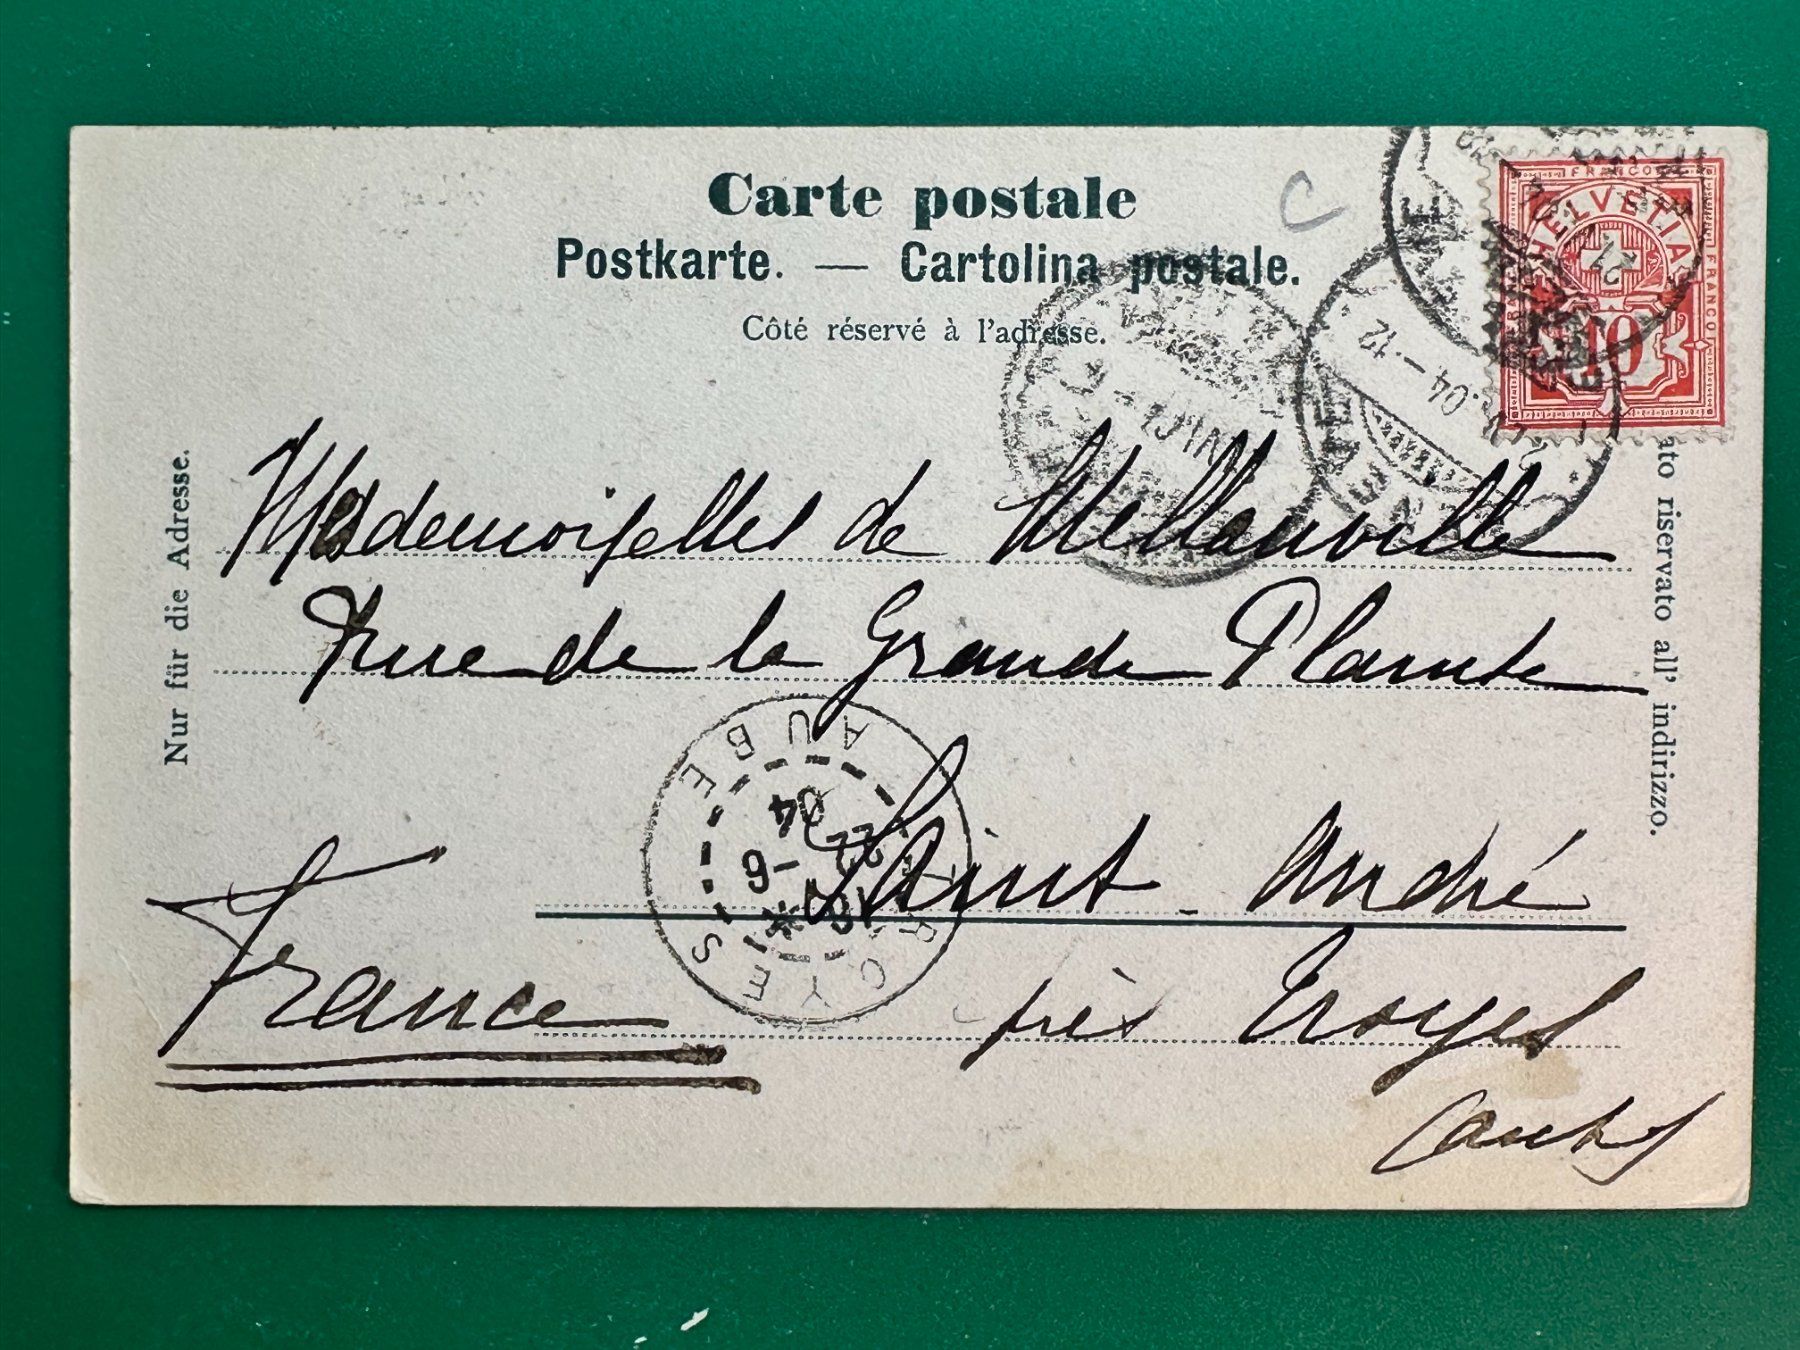 Carte postale
Postkarte. — Cartolina postale.
Côté réservé à l'adresse.
C
FRANCO
HELVETIA
FRANCO
10
04 –. 12
Nur für die Adresse.
ato riservato all' indirizzo.
Mesdemoiselles de Mellanville
rue de la Grande Planche
AUBE
22
6
04
Saint-André
France
près Troyes
Aube